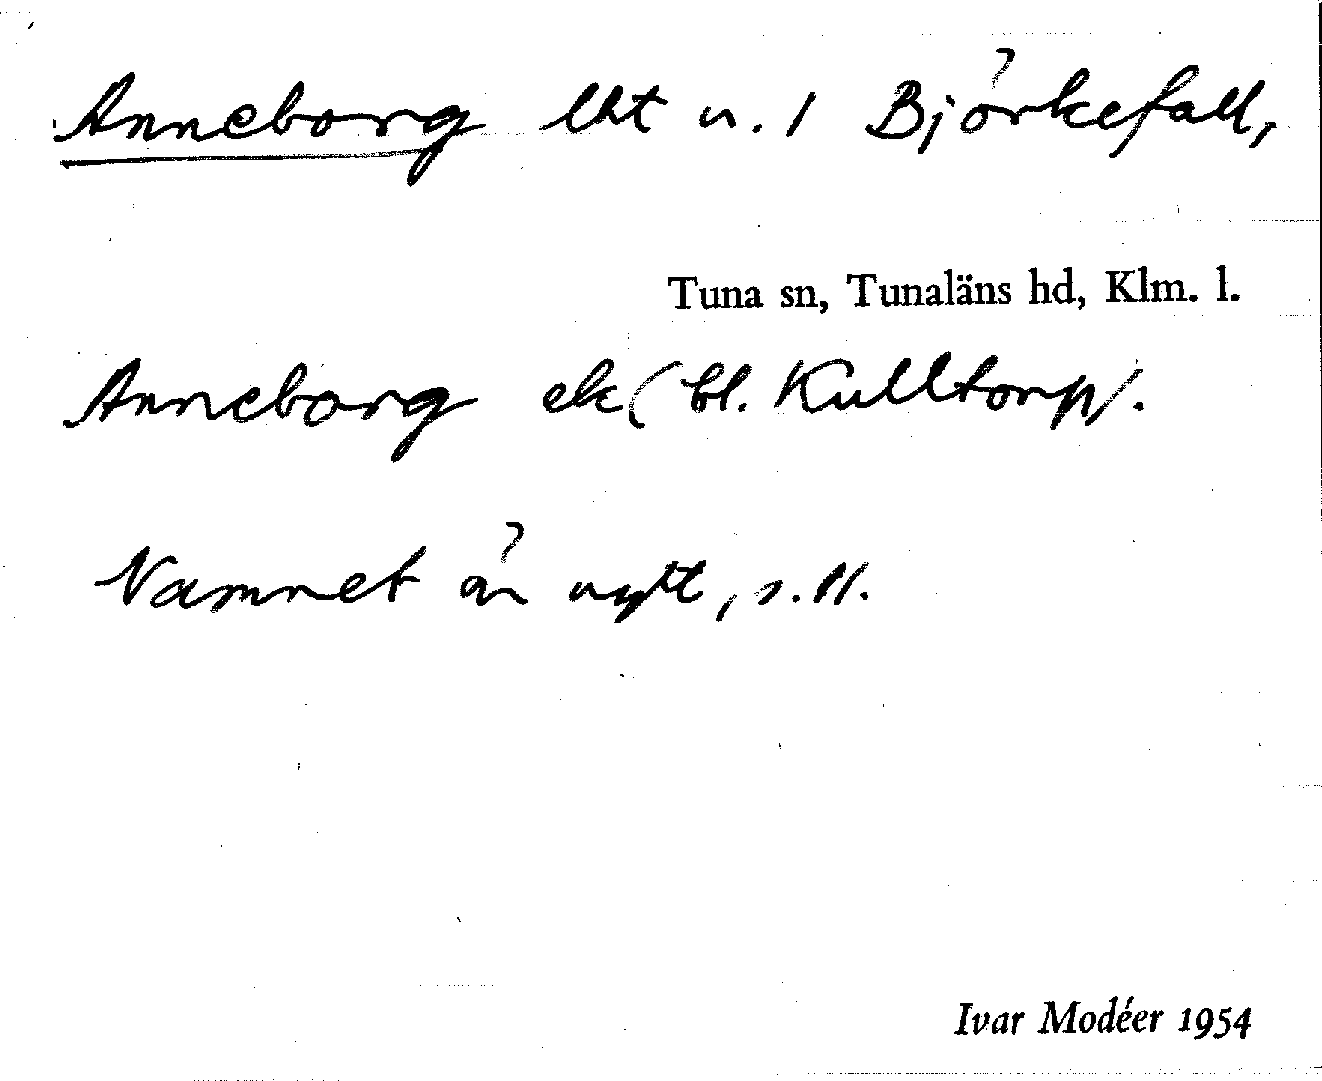 Anneborg lht u. 1 Björkefall,
Tuna sn, Tunaläns hd, Klm. l.
Anneborg ek (bl. Kulltorp).
Namnet är nytt, s. ll.
Ivar Modéer 1954